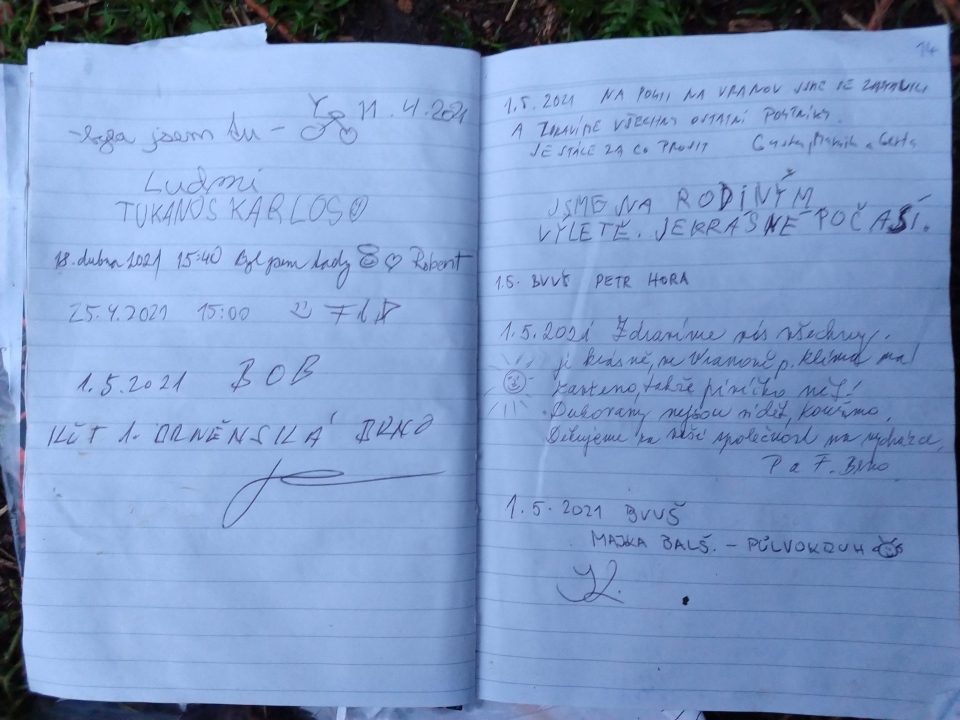 11.4.2021
jsem tu -
Ludmi
TUKANOS KARLOS
18. dubna 2021 15:40 Byl jsem tady Robert
25.4.2021 15:00
1.5.2021 BOB
KČT 1. BRNĚNSKÁ BRNO
14
1.5.2021 NA POUTI NA VRANOV JSME SE ZASTAVILI
A ZDRAVÍME VŠECHNY OSTATNÍ POUTNÍKY.
JE STÁLE ZA CO PROSIT
JSME NA RODINÝM
VÝLETĚ. JE KRÁSNÉ POČASÍ.
1.5. BVVŠ PETR HORA
1.5.2021 Zdravíme vás všechny.
je krásně, ve Vranově p. Klíma má
zavřeno, takže pivíčko néé!
Dukovany nejsou vidět, kouřmo.
Děkujeme za vaši společnost na vycházce,
P a F. Brno
1.5.2021 BVVŠ
MAJKA BALŠ. - PŮLVOKRUH